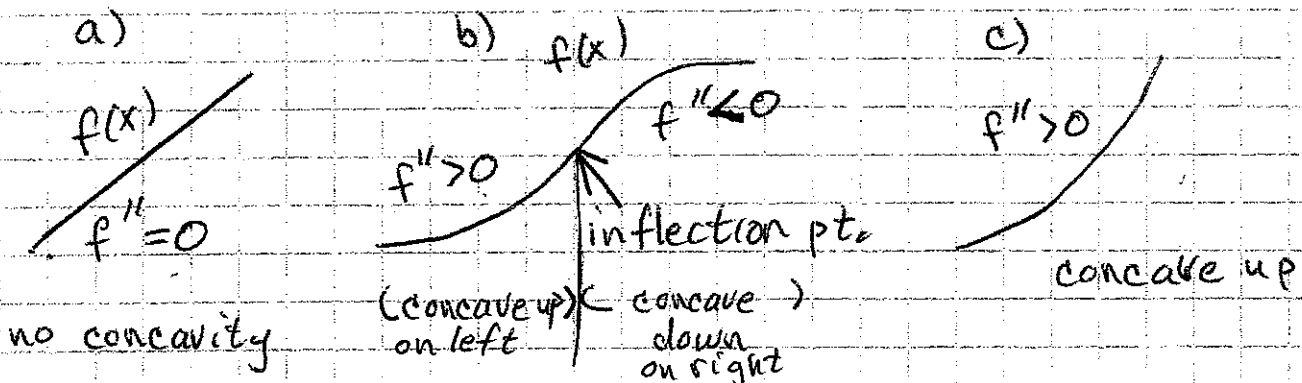 a)
f(x)
f''=0
no concavity
b)
f(x)
f''>0
f''<0
inflection pt.
(concave up)
on left
( concave )
down
on right
c)
f''>0
concave up